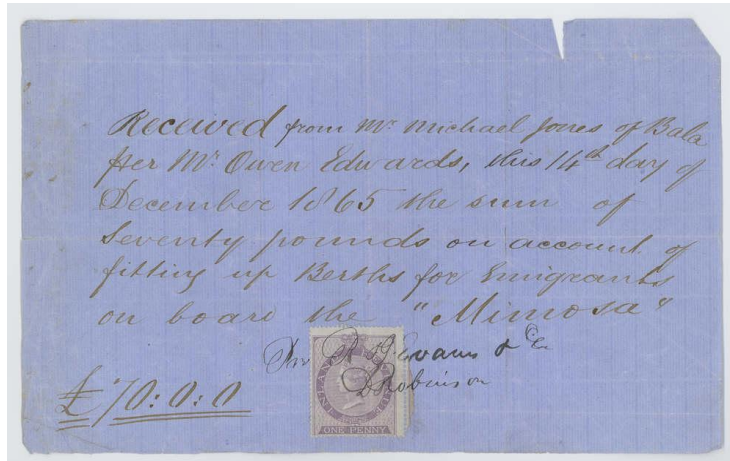 Received from Mr Michael Jones of Bala
Per Mr Owen Edwards, this 14th day of
December 1865 the sum of
Seventy pounds on account of
fitting up Berths for Emigrants
on board the "Mimosa"
Evans & Co
D Robinson
£70:0:0
INLAND REVENUE
ONE PENNY